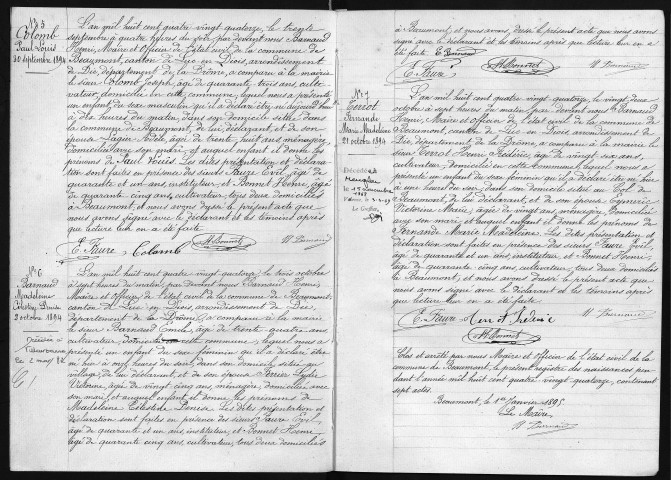 N° 5
Colomb
Paul Louis
30 septembre 1894
L'an mil huit cent quatre vingt quatorze, le trente
septembre à quatre heures du soir, par devant nous Barnaud
Henri, Maire et Officier de l'état civil de la commune de
Beaumont, canton de Luc en Diois, arrondissement
de Die, département de la Drôme, a comparu à la mairie
le sieur Colomb Joseph, âgé de quarante trois ans, culti-
vateur, domicilié en cette commune, lequel nous a présenté
un enfant du sexe masculin qu'il a déclaré être né aujourd'hui
à heures du matin, dans son domicile situé dans
la commune de Beaumont, de lui, déclarant, et de son
épouse âgée de trente huit ans, ménagère,
domiciliée avec son mari, et auquel enfant il donne les
prénoms de Paul Louis. Les dites présentation et déclara-
tion sont faites en présence des sieurs Faure Evil, âgé de
quarante et un ans, instituteur, et Bonnet Henri, âgé
de quarante cinq ans, cultivateur, tous deux domiciliés
à Beaumont, et nous avons dressé le présent acte que
nous avons signé avec le déclarant et les témoins après
que lecture leur en a été faite
E. Faure Colomb H. Bonnet H. Barnaud
N° 6
Barnaud
Madeleine
Denise
2 octobre 1894
L'an mil huit cent quatre vingt quatorze, le trois octobre
à sept heures du matin, par devant nous Barnaud Henri,
Maire et officier de l'état civil de la commune de Beaumont,
canton de Luc en Diois, arrondissement de Die,
département de la Drôme, a comparu à la mairie
le sieur Barnaud Emile, âgé de trente quatre ans,
cultivateur, domicilié en cette commune, lequel nous a
présenté un enfant du sexe féminin qu'il a déclaré être
né hier à onze heures du soir, dans son domicile situé au
village, de lui déclarant, et de son épouse
Victorine, âgée de vingt cinq ans, ménagère, domiciliée avec
son mari, et auquel enfant il donne les prénoms de
Madeleine Célestide Denise. Les dites présentation et
déclaration sont faites en présence des sieurs Faure Evil,
âgé de quarante et un ans, instituteur, et Bonnet Henri,
âgé de quarante cinq ans, cultivateur, tous deux domiciliés
à Beaumont, et nous avons dressé le présent acte que nous avons
signé avec le déclarant et les témoins après que lecture leur en
a été faite E. Barnaud
E. Faure H. Bonnet H. Barnaud
N° 7
Terrot
Fernande
Marie Madeleine
21 octobre 1894
Décédée à
L'an mil huit cent quatre vingt quatorze, le vingt deux
octobre à sept heures du matin, par devant nous Barnaud
Henri, Maire et officier de l'état civil de la commune de
Beaumont, canton de Luc en Diois, arrondissement de
Die, département de la Drôme, a comparu à la mairie
le sieur Terrot Henri Frédéric, âgé de vingt six ans,
cultivateur, domicilié en cette commune, lequel nous a
présenté un enfant du sexe féminin qu'il a déclaré être né hier
à une heure du soir dans son domicile situé au Col de
Beaumont, de lui déclarant, et de son épouse
Victorine Marie, âgée de vingt ans, ménagère, domiciliée
avec son mari, et auquel enfant il donne les prénoms de
Fernande Marie Madeleine. Les dites présentation et
déclaration sont faites en présence des sieurs Faure Evil,
âgé de quarante et un ans, instituteur, et Bonnet Henri,
âgé de quarante cinq ans, cultivateur, tous deux domiciliés
à Beaumont, et nous avons dressé le présent acte que
nous avons signé avec le déclarant et les témoins après
que lecture leur en a été faite.
E. Faure H. Bonnet H. Barnaud
Clos et arrêté par nous Maire et officier de l'état civil de la
commune de Beaumont, le présent registre des naissances pen-
dant l'année mil huit cent quatre vingt quatorze, contenant
sept actes.
Beaumont, le 1er Janvier 1895.
Le Maire,
H. Barnaud